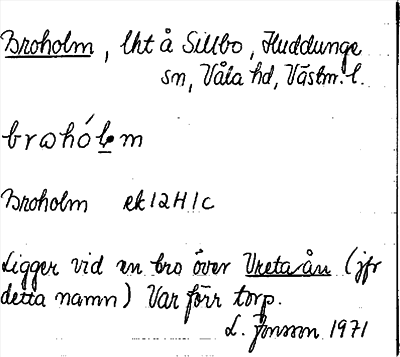 Broholm, lht å Sillbo, Huddunge
sn, Våla hd, Västm. l.
brωhól̠m
Broholm ek 12H1c
Ligger vid en bro över Vretaån (jfr
detta namn) Var förr torp.
L. Jonsson 1971